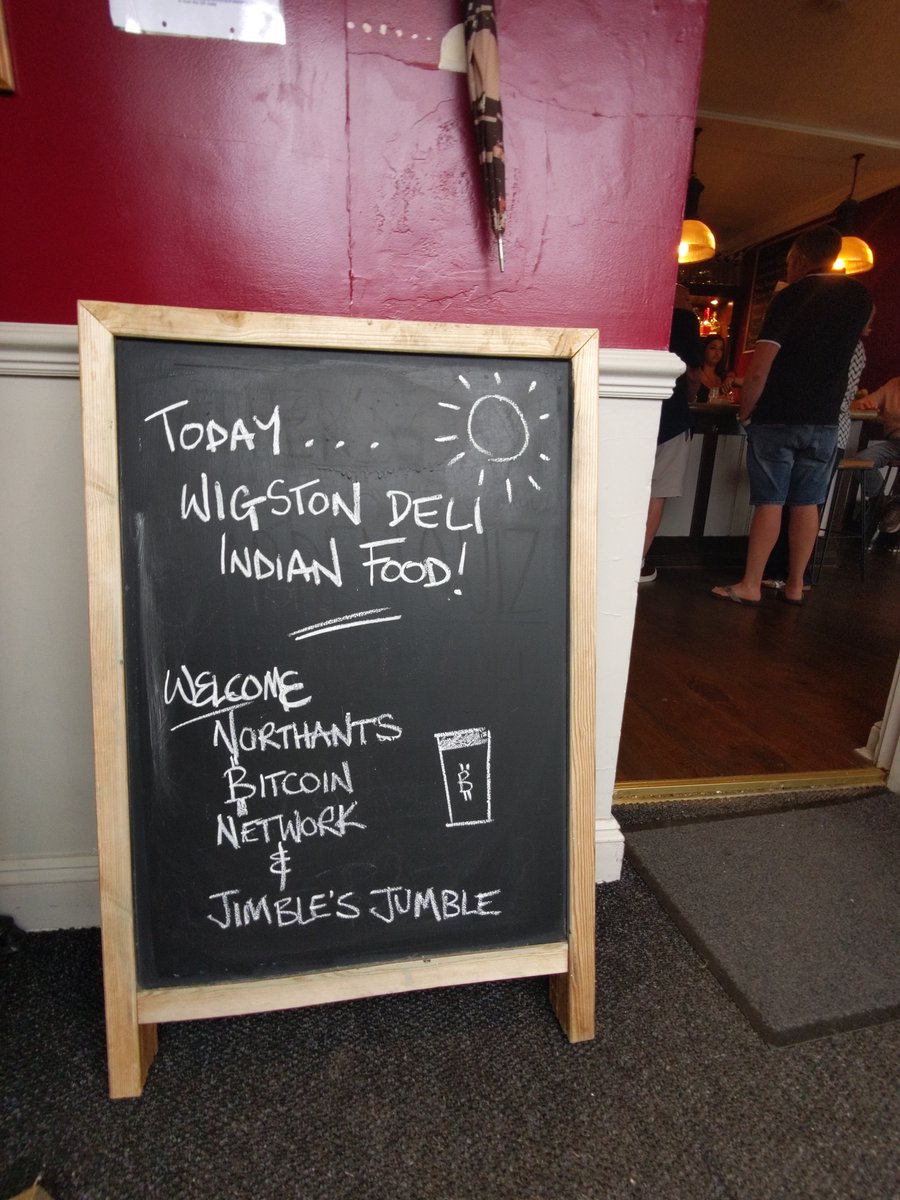 TODAY....
WIGSTON DELI
INDIAN FOOD!
WELCOME
NORTHANTS
BITCOIN
NETWORK
&
JIMBLE'S JUMBLE